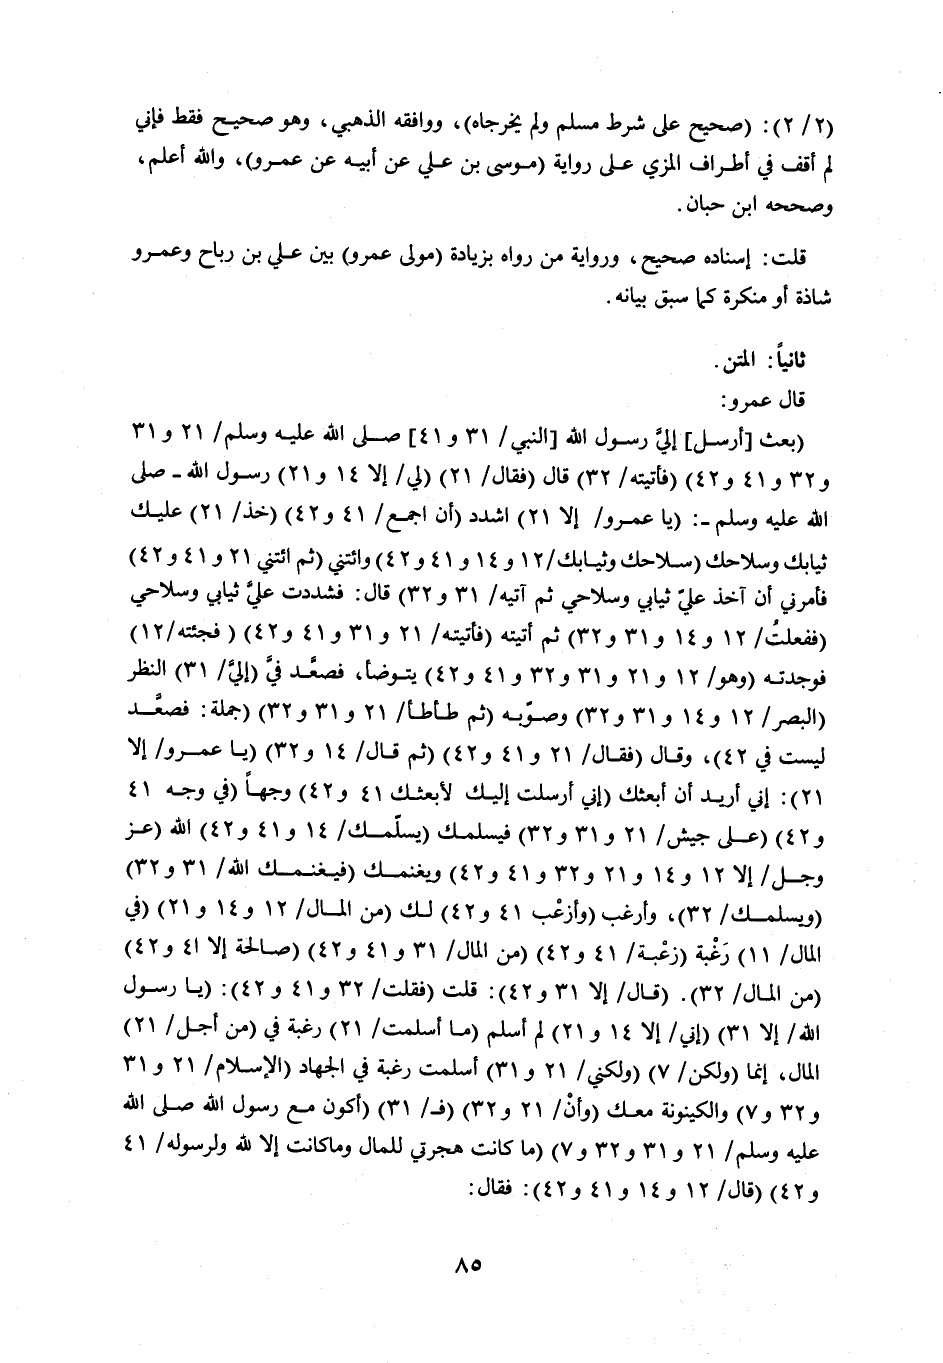 (٢/ ٢): (صحيح على شرط مسلم ولم يخرجاه)، ووافقه الذهبي، وهو صحيح فقط فإني
لم أقف في أطراف المزي على رواية (موسى بن علي عن أبيه عن عمرو)، والله أعلم،
وصححه ابن حبان.
قلت: إسناده صحيح، ورواية من رواه بزيادة (مولى عمرو) بين علي بن رباح وعمرو
شاذة أو منكرة كما سبق بيانه.
ثانياً: المتن.
قال عمرو:
(بعث [أرسل] إليَّ رسول الله [النبي/ ٣١ و٤١] صلى الله عليه وسلم/ ٢١ و٣١
و٣٢ و٤١ و٤٢) (فأتيته/ ٣٢) قال (فقال/ ٢١) (لي/ إلا ١٤ و٢١) رسول الله - صلى
الله عليه وسلم -: (يا عمرو/ إلا ٢١) اشدد (أن اجمع/ ٤١ و٤٢) (خذ/ ٢١) عليك
ثيابك وسلاحك (سلاحك وثيابك/ ١٢ و١٤ و٤١ و٤٢) وائتني (ثم ائتني ٢١ و٤١ و٤٢)
فأمرني أن آخذ عليّ ثيابي وسلاحي ثم آتيه/ ٣١ و٣٢) قال: فشددت عليَّ ثيابي وسلاحي
(ففعلتُ/ ١٢ و١٤ و٣١ و٣٢) ثم أتيته (فأتيته/ ٢١ و٣١ و٤١ و٤٢) (فجئته/ ١٢)
فوجدته (وهو/ ١٢ و٢١ و٣١ و٣٢ و٤١ و٤٢) يتوضأ، فصعَّد فيَّ (إليَّ/ ٣١) النظر
(البصر/ ١٢ و١٤ و٣١ و٣٢) وصوّبه (ثم طأطأ/ ٢١ و٣١ و٣٢) (جملة: فصعَّد
ليست في ٤٢)، وقال (فقال/ ٢١ و٤١ و٤٢) (ثم قال/ ١٤ و٣٢) (يا عمرو/ إلا
٢١): إني أريد أن أبعثك (إني أرسلت إليك لأبعثك ٤١ و٤٢) وجهاً (في وجه ٤١
و٤٢) (على جيش/ ٢١ و٣١ و٣٢) فيسلمك (يسلّمك/ ١٤ و٤١ و٤٢) الله (عز
وجل/ إلا ١٢ و١٤ و٢١ و٣٢ و٤١ و٤٢) ويغنمك (فيغنمك الله/ ٣١ و٣٢)
(ويسلمك/ ٣٢)، وأرغب (وأزعْب ٤١ و٤٢) لك (من المال/ ١٢ و١٤ و٢١) (في
المال/ ١١) رَغْبة (زعْبة/ ٤١ و٤٢) (من المال/ ٣١ و٤١ و٤٢) (صالحة إلا ٤١ و٤٢)
(من المال/ ٣٢). (قال/ إلا ٣١ و٤٢): قلت (فقلت/ ٣٢ و٤١ و٤٢): (يا رسول
الله/ إلا ٣١) (إني/ إلا ١٤ و٢١) لم أسلم (ما أسلمت/ ٢١) رغبة في (من أجل/ ٢١)
المال، إنما (ولكن/ ٧) (ولكني/ ٢١ و٣١) أسلمت رغبة في الجهاد (الإسلام/ ٢١ و٣١
و٣٢ و٧) والكينونة معك (وأنْ/ ٢١ و٣٢) (فـ/ ٣١) (أكون مع رسول الله صلى الله
عليه وسلم/ ٢١ و٣١ و٣٢ و٧) (ما كانت هجرتي للمال وماكانت إلا لله ولرسوله/ ٤١
و٤٢) (قال/ ١٢ و١٤ و٤١ و٤٢): فقال:
٨٥